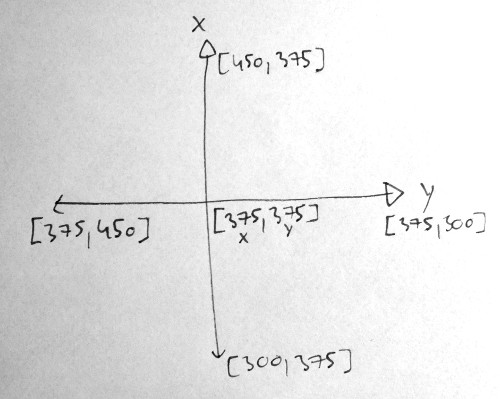 X
[450,375]
Y
[375,450]
[375,375]
x y
[375,300]
[300,375]